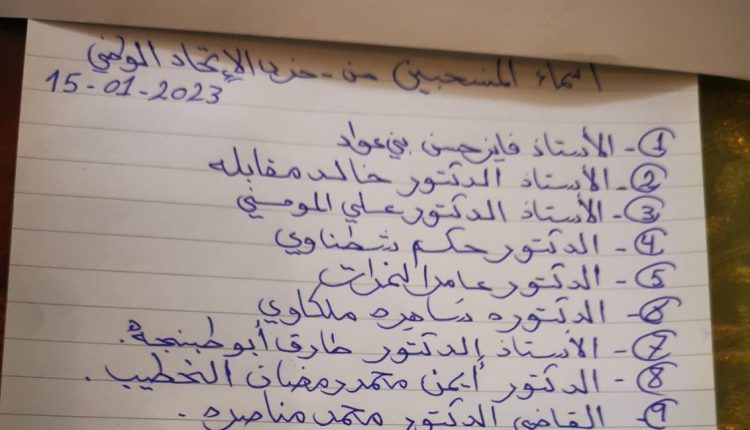 اسماء المنسحبين من - حزب الإتحاد الوطني
15-01-2023
1- الأستاذ فايز حسن بني عواد
2- الأستاذ الدكتور خالد مقابله
3- الأستاذ الدكتور علي المومني
4- الدكتور حكم شطناوي
5- الدكتور عامر النمرات
6- الدكتوره ساهره ملكاوي
7- الأستاذ الدكتور طارق أبو طبنجة.
8- الدكتور أيمن محمد رمضان الخطيب.
9- القاضي الدكتور محمد مناصره.